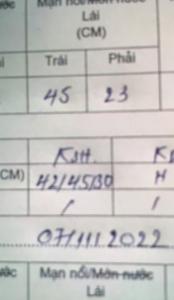 ước Mạn nổi/Mớn nước
Lái
(CM)
i Trái Phải
45 23
KSH. KS
CM) 42/45/30 H
/ /
07/11/2022
ước Mạn nổi/Mớn nước
Lái